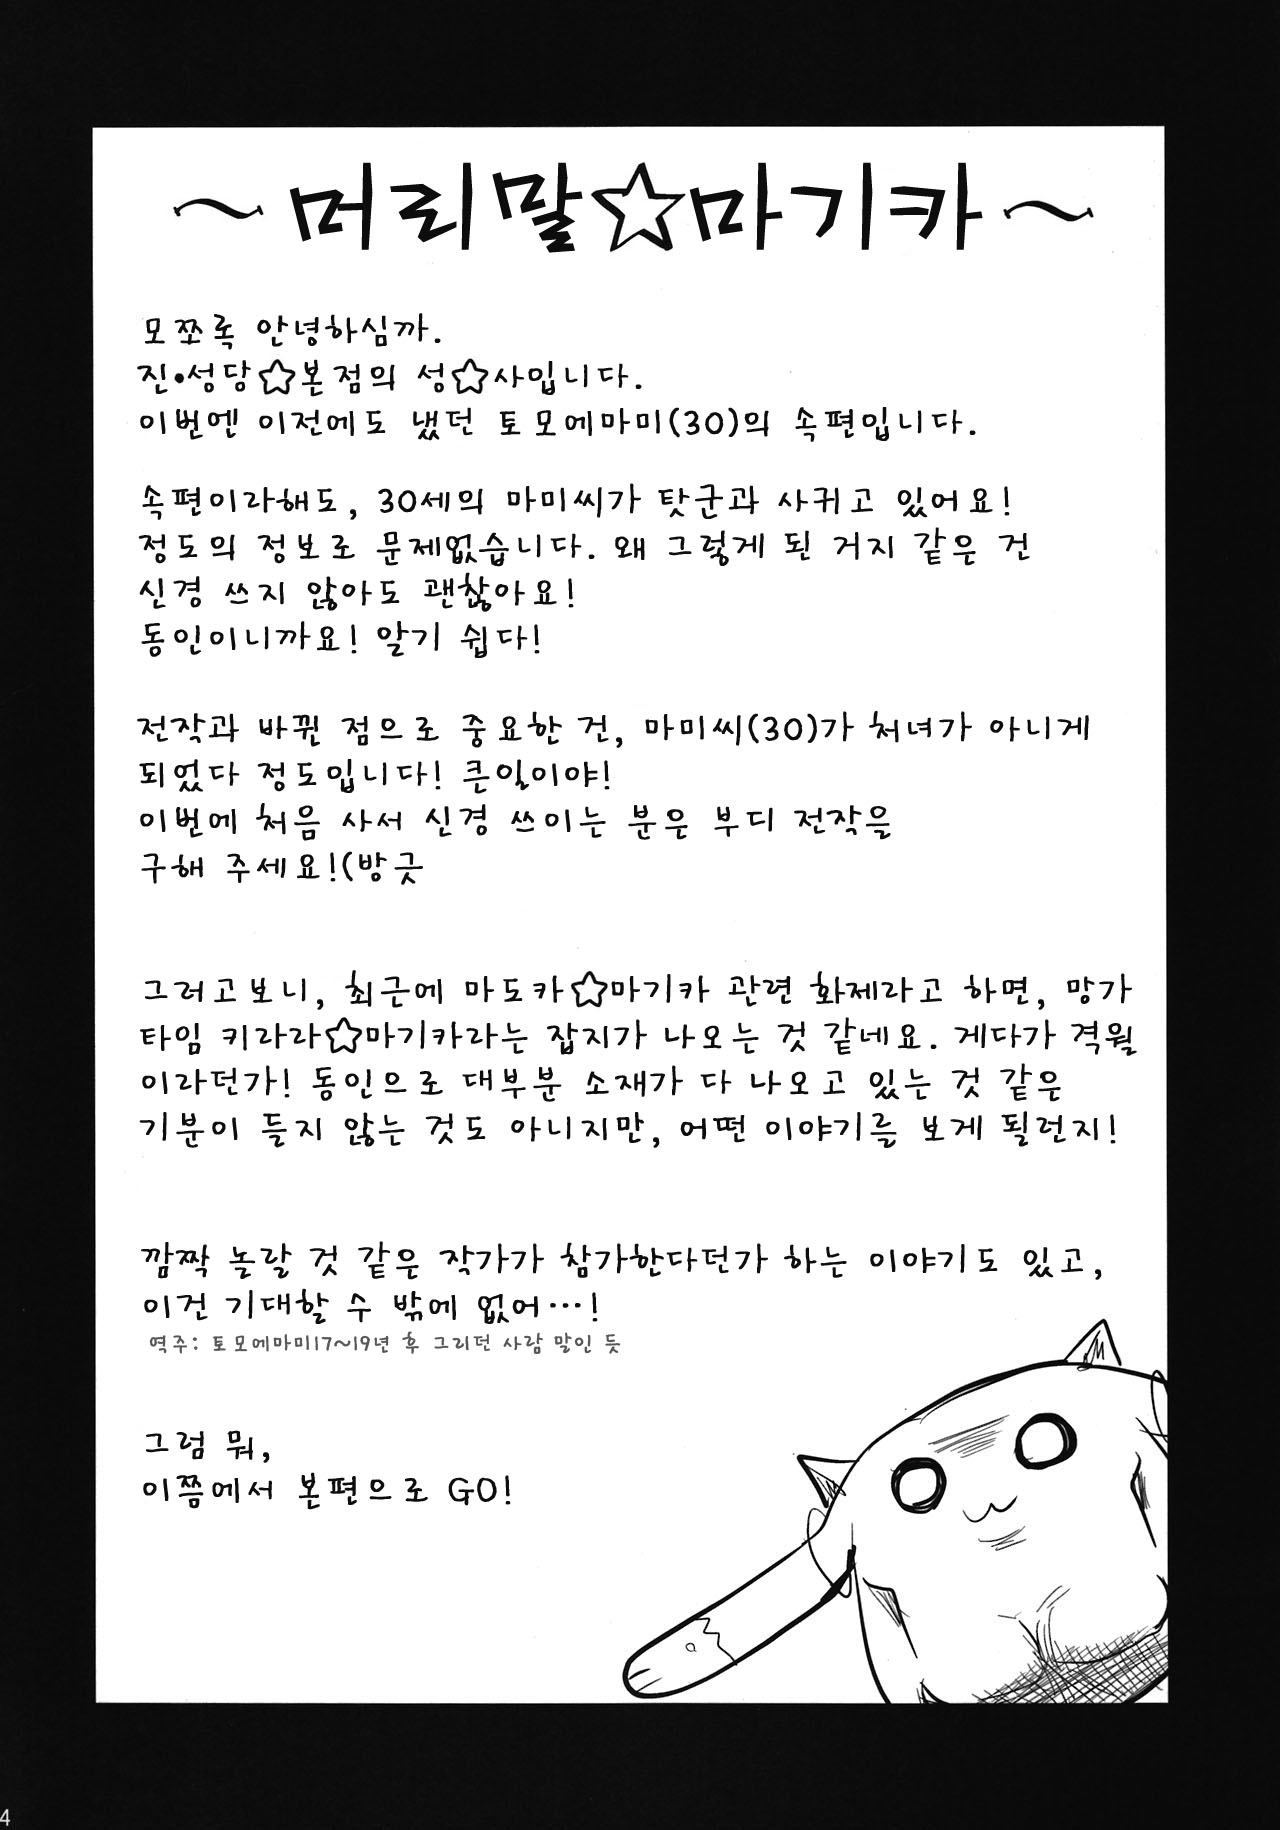 ～머리말☆마기카～
모쪼록 안녕하심까.
진•성당☆본점의 성☆사입니다.
이번엔 이전에도 냈던 토모에마미(30)의 속편입니다.
속편이라해도, 30세의 마미씨가 탓군과 사귀고 있어요!
정도의 정보로 문제없습니다. 왜 그렇게 된 거지 같은 건
신경 쓰지 않아도 괜찮아요!
동인이니까요! 알기 쉽다!
전작과 바뀐 점으로 중요한 건, 마미씨(30)가 처녀가 아니게
되었다 정도입니다! 큰일이야!
이번에 처음 사서 신경 쓰이는 분은 부디 전작을
구해 주세요!(방긋
그러고보니, 최근에 마도카☆마기카 관련 화제라고 하면, 망가
타임 키라라☆마기카라는 잡지가 나오는 것 같네요. 게다가 격월
이라던가! 동인으로 대부분 소재가 다 나오고 있는 것 같은
기분이 들지 않는 것도 아니지만, 어떤 이야기를 보게 될런지!
깜짝 놀랄 것 같은 작가가 참가한다던가 하는 이야기도 있고,
이건 기대할 수 밖에 없어…!
역주: 토모에마미17~19년 후 그리던 사람 말인 듯
그럼 뭐,
이쯤에서 본편으로 GO!
4